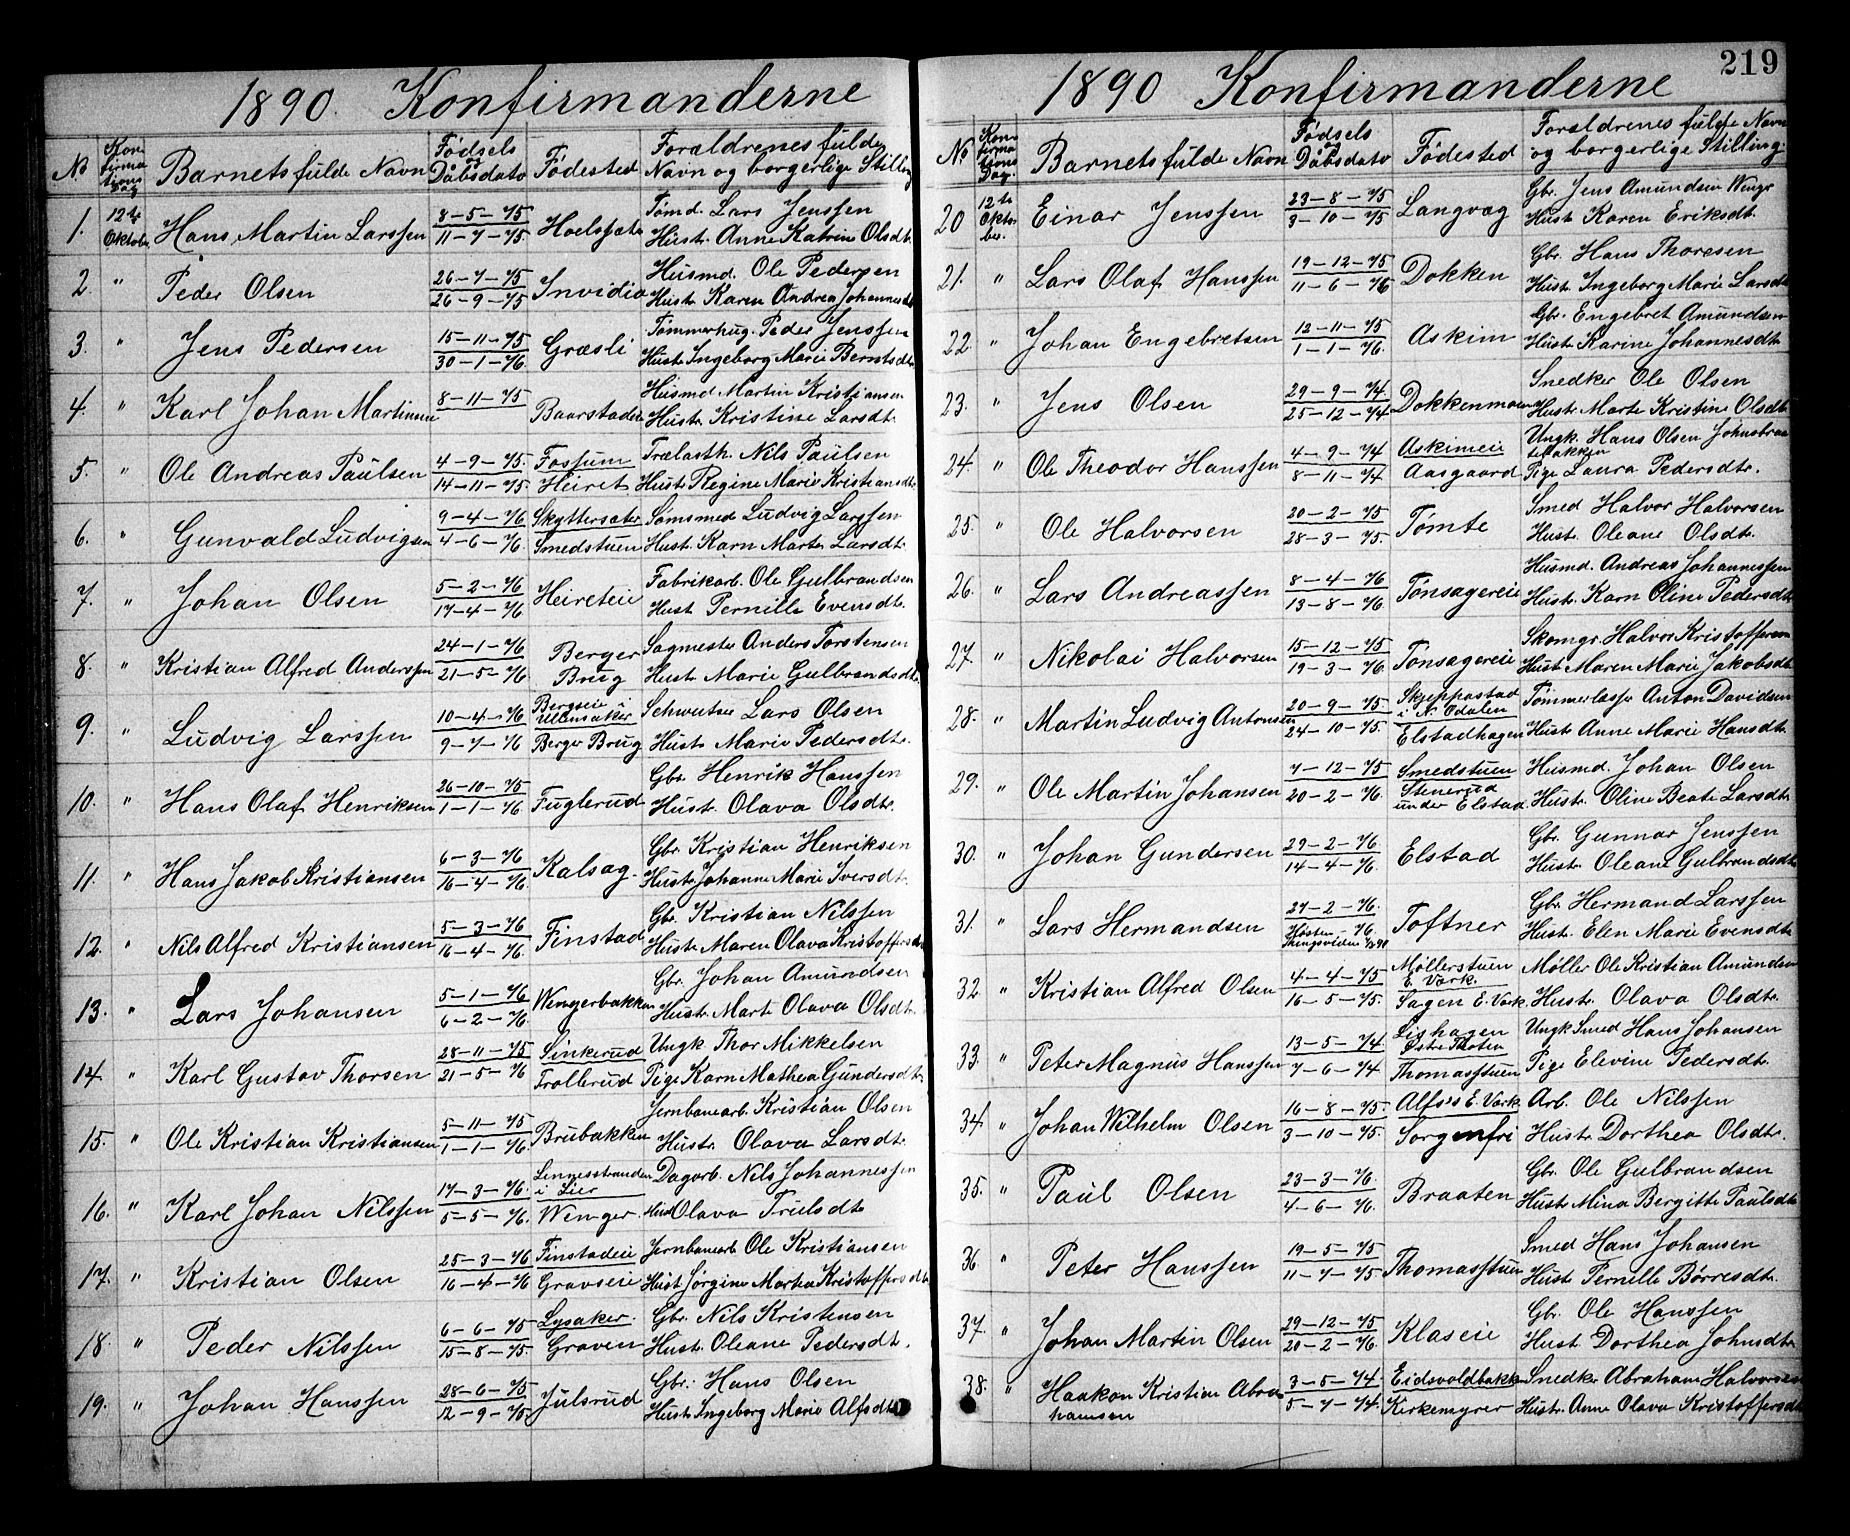 1890. Konfirmanderne
No Kon-firma-tions Dag Barnets fulde Navn Fødsels og Dåbsdato Fødested Forældrenes fulde Navn og borgerlige Stilling
1. 12te Oktober Hans Martin Larssen 8-5-75 Hoelssæter Tømd. Lars Jenssen
11-7-75. Hustr. Anne Katrine Olsdt.
2. " Peder Olsen 26-7-75 Invidia Husmd. Ole Pedersen
26-9-75 Hustr. Karen Andrea Johannesdt
3. " Jens Pedersen 15-11-75 Græsli Tømmerhug. Peder Jenssen
30-1-76. Hustr. Ingeborg Marie Berntsdtr
4. " Karl Johan Martinsen 8-11-75 Baarstadeie Husmd Martin Kristiansen
Hustr. Kristine Larsdt.
5. " Ole Andreas Paulsen 4-9-75. Fossum Trælasth. Nils Paulsen
14-11-75. Heiret Hustr Regine Marie Kristiansdt.
6. " Gunvald Ludvigsen 9-4-76 Skyttersæter Sømsmed Ludvig Larssen
4-6-76. Smedstuen Hust. Karn Marte Larsdt.
7. " Johan Olsen 5-2-76 Heireteie Fabrikarb. Ole Gulbrandsen
17-4-76 Hust Pernille Evensdt.
8. " Kristian Alfred Anderssen 24-1-76 Berger Sagmester Anders Torstensen
21-5-76 Brug Hust Marie Gulbrandsdt.
9. " Ludvig Larssen 10-4-76 Bergseie i Ullensaker Schweitser Lars Olsen
9-7-76 Berger Brug Hustr Marie Pedersdt.
10. " Hans Olaf Henriksen 26-10-75 Fuglerud Gbr. Henrik Hanssen
1-1-76 Hustr. Olava Olsdt.
11. " Hans Jakob Kristiansen 6-3-76 Kalsag. Gbr Kristian Henriksen
16-4-76. Hustr. Johanne Marie Iversdt.
12. " Nils Alfred Kristiansen 5-3-76 Finstad Gbr. Kristian Nilssen
16-4-76. Hustr. Maren Olava Kristoffersdt
13. " Lars Johansen 5-1-76 Wengerbakken Gbr. Johan Amundsen
6-2-76. Hustr. Mart Olava Olsdt.
14. " Karl Gustav Thorsen 28-11-75 Sinkerud Ungk Thor Mikkelsen
21-5-76 Trollerud Pige Karn Mathea Gundersdt.
15. " Ole Kristian Kristiansen 5-11-75 Brubakken Jernbanearb. Kristian Olsen
1-1-76. Hustr. Olava Larsdt.
16. " Karl Johan Nilssen 17-3-76. Linnesstranden i Lier Dagarb. Nils Johannessen
5-5-76. Wenger. Hust Olava Trulsdt.
17. " Kristian Olsen 25-3-76 Finstadeie Jernbanearb Ole Kristiansen
16-4-76 Gravseie Hust Jørgine Martea Kristoffersdt
18. " Peder Nilssen 6-6-75 Lysaker. Gbr. Nils Kristensen
15-8-75 Graven Hustr. Oleane Pedersdt.
19. " Johan Hanssen 28-6-75 Julsrud Gbr. Hans Olsen
12-9-75. Hust. Ingeborg Marie Alfsdt
219
1890 Konfirmanderne
No Kon-firma-tions Dag. Barnets fulde Navn Fødsels og Dåbsdato Fødested Forældrenes fulde Navn og borgerlige Stilling.
20 12te Oktober. Einar Jenssen 23-8-75 Langvag Gbr. Jens Amundsen Wenger
3-10-75 Hust Karen Eriksdt.
21. " Lars Olaf Hanssen 19-12-75 Dokken Gbr. Hans Thoresen
11-6-76 Hustr. Ingeborg Marie Larsdt
22. " Johan Engebretsen 12-11-75 Askim Gbr. Engebret Amundsen
1-1-76. Hustr. Karine Johannesdt.
23. " Jens Olsen 29-9-74 Dokkenmoen Snedker Ole Olsen
25-12-74 Hustr. Marte Kristine Olsdt.
24. " Ole Theodor Hanssen 4-9-74 Askimeie Ungk. Hans Olsen
8-11-74 Aasgaard Pige Laura Pedersdtr.
25. " Ole Halvorsen 20-2-75 Tømte Smed Halvor Halvorsen
28-3-75. Hustr. Oleane Olsdt.
26. " Lars Andreassen 8-4-76 Tønsagereie Husmd. Andreas Johannessen
13-8-76. Hustr. Karn Oline Pedersdt.
27. " Nikolai Halvorsen 15-12-75 Tonsagereie Skomgr. Halvor Kristoffersen
19-3-76 Hustr Maren Marie Jakobsdt
28. " Martin Ludvig Antonsen 20-9-75 Skeppastad i N. Odalen Tømmerlasse Anton Davidsen
24-10-75. Elstadhagen Hust Anne Marie Hansdt.
29. " Ole Martin Johansen 7-12-75 Smedstuen Husmd. Johan Olsen
20-2-76. Stenerud under Elstad Hustr. Oline Beate Larsdt.
30. " Johan Gundersen 29-2-76 Elstad Gbr. Gunnar Jenssen
14-4-76. Hustr. Oleane Gulbrandsdt
31. " Lars Hermandsen 27-2-76. Toftner Gbr. Hermand Larssen
Høsten -76. Hust. Elen Marie Evensdt.
32. " Kristian Alfred Olsen 4-4-75 Møllerstuen E. Værk. Møller Ole Kristian Amundsen
16-5-75. Sagen E. Værk Hustr. Olava Olsdt.
33. " Peter Magnus Hanssen 13-5-74 Lishagen Østre Thoten Ungk Smed Hans Johansen
7-6-74 Thomasstuen Pige Elevine Pedersdt.
34. " Johan Wilhelm Olsen 16-8-75. Alfsis E. Værk Arb. Ole Nilssen
3-10-75. Sorgenfri Hustr Dorthea Olsdt.
35. " Paul Olsen 23-3-76. Braaten Gbr. Ole Gulbrandsen
4-6-76. Hustr Mina Bergitte Paulsdt.
36. " Peter Hanssen 19-5-75 Thomasstuen Smed Hans Johansen
11-7-75 Hustr Pernille Børresdt.
37. " Johan Martin Olsen 29-12-75 Klaseie Gbr. Ole Hanssen
20-2-76. Hust Dorthea Johnsdt.
38. " Haakon Kristian Abra- 3-5-74. Eidsvoldbakken Snedkr Abraham Halvorsen
hamsen 5-7-74. Kirkemyrer Hustr. Anne Olava Kristoffersdt